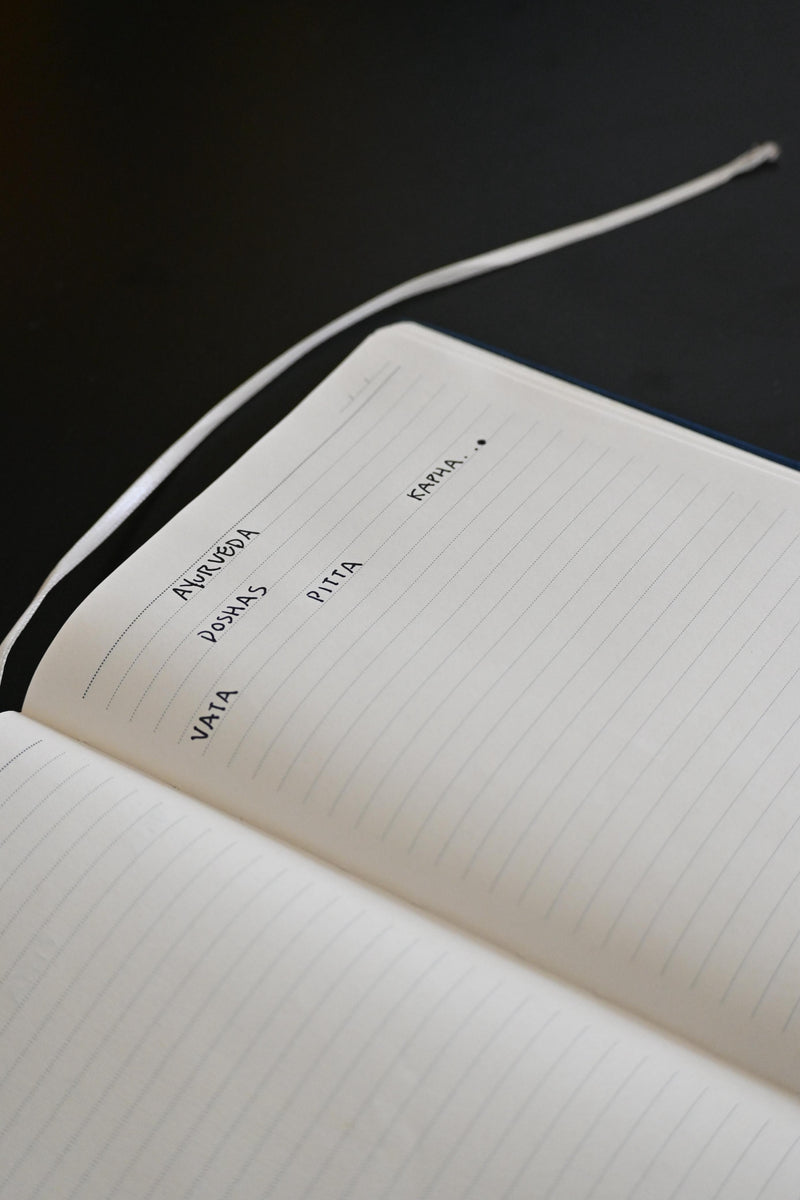 AYURVEDA
DOSHAS
VATA PITTA KAPHA...